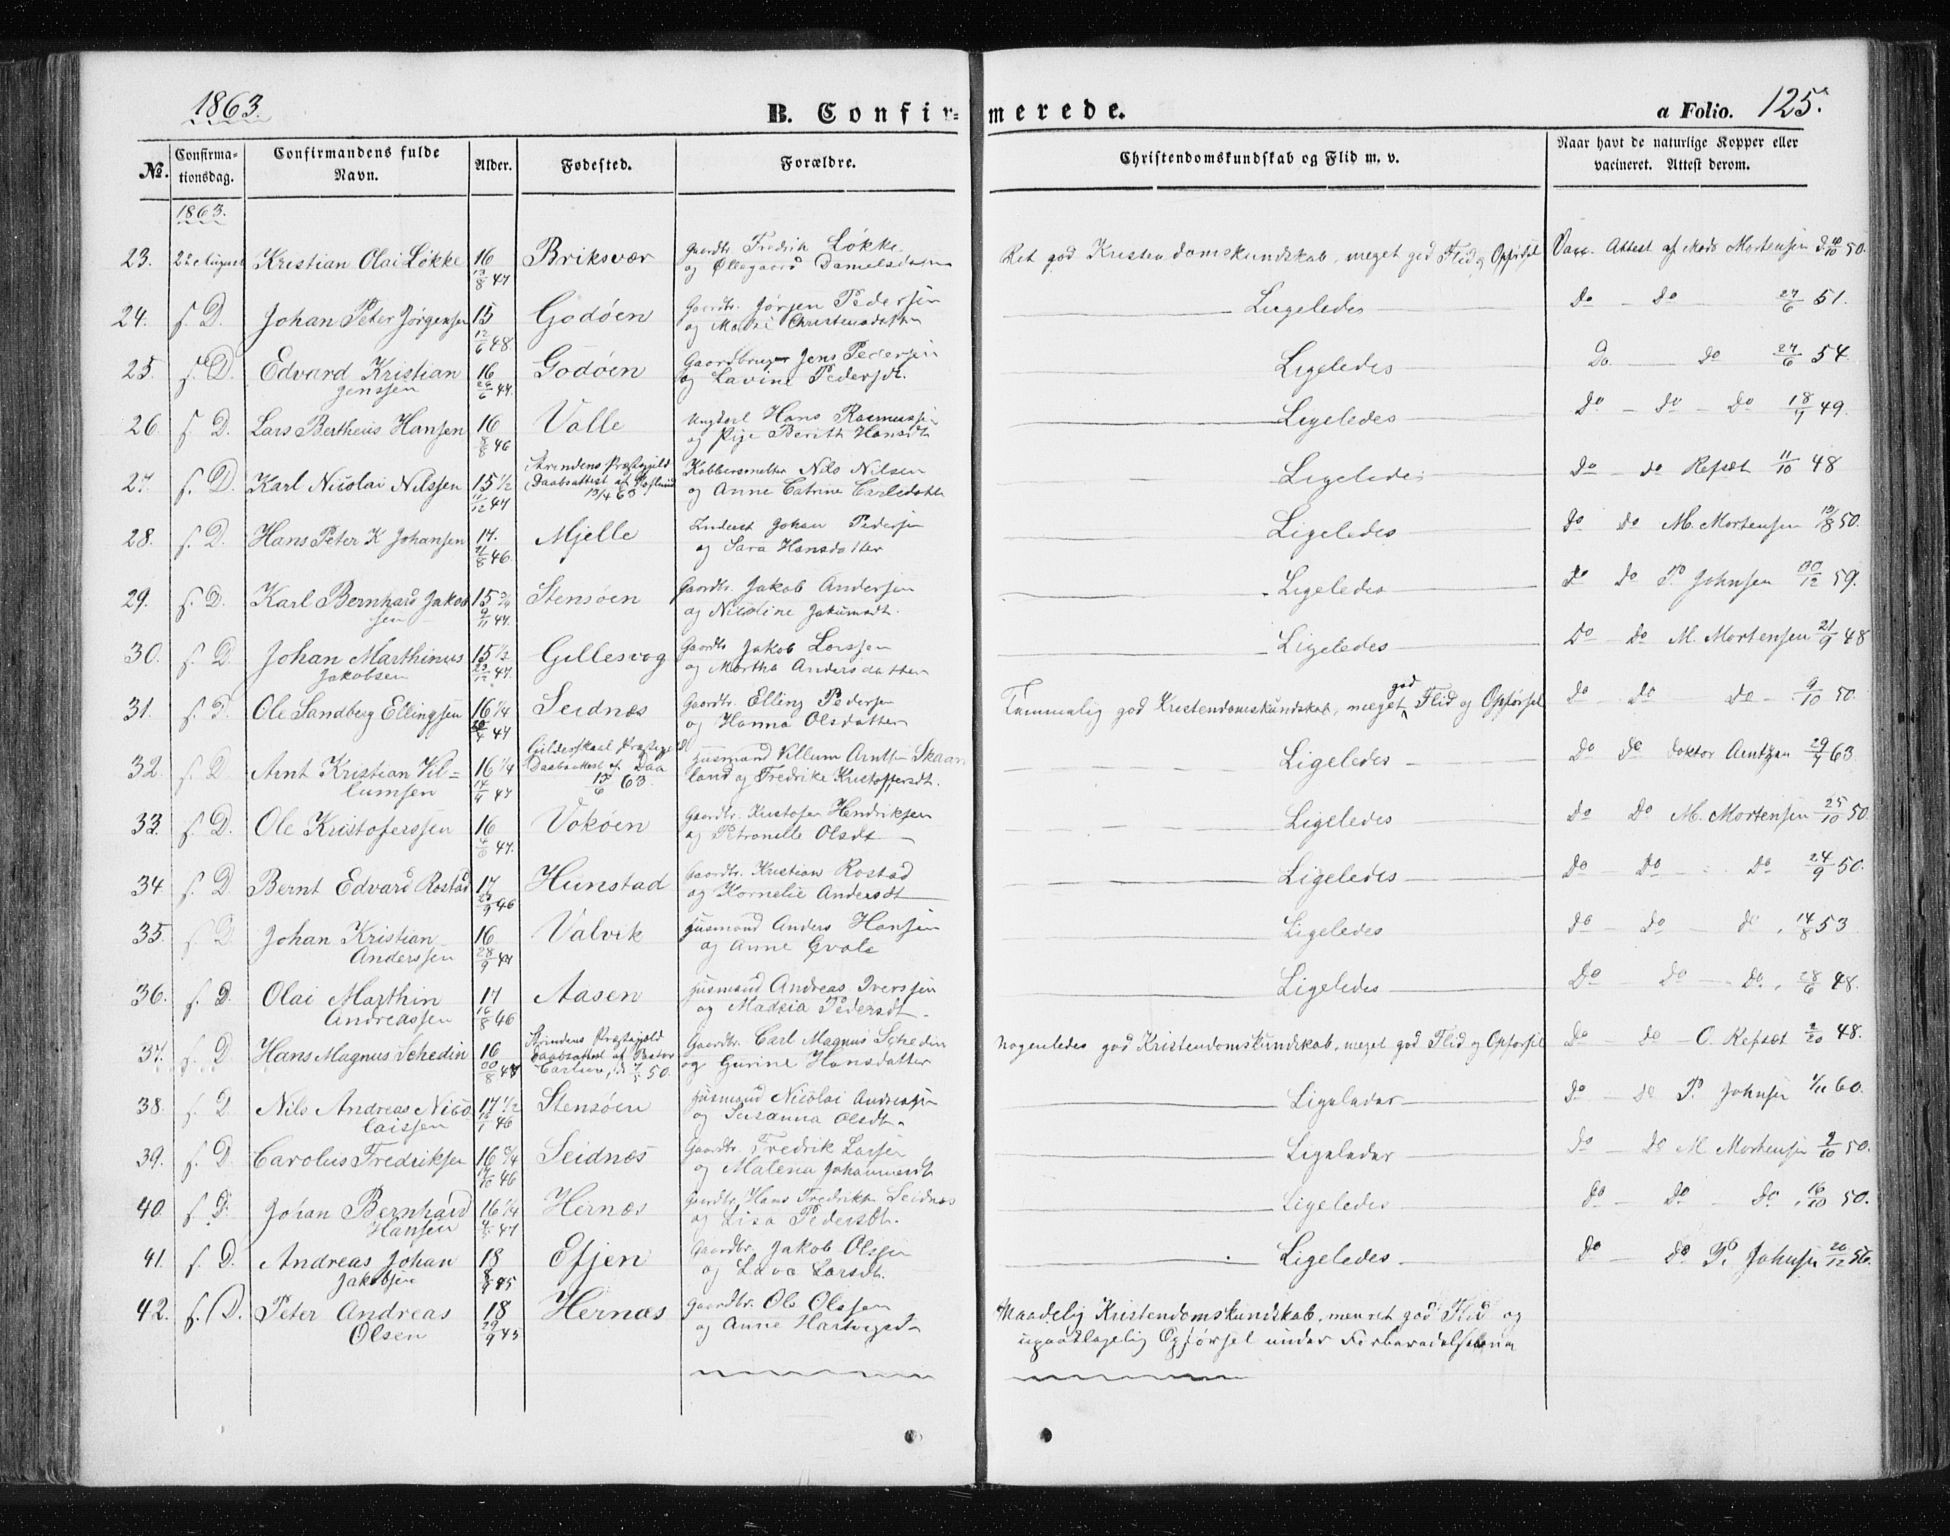 1863.
B. Confirmerede.
a Folio. 125.
No. Confirmationsdag. Confirmandens fulde Navn. Alder. Fødested. Forældre. Christendomskundskab og Flid m. v. Naar havt de naturlige Kopper eller vacineret. Attest derom.
1863.
23. 22 August Kristian Olai Løkke 16 Briksvær Gaardbr. Fredrik Løkke og Ellegaard Danielsdatter Ret god Kristendomskundskab, meget god Flid og Opførsel Vacc. Attest af Mads Mortensen 50.
24. s. D. Johan Peter Jørgensen 15 12/6 48 Godøen Gaardbr. Jørgen Pedersen og Christensdatter Ligeledes Do Do 27/6 51.
25. s. D. Edvard Kristian Jenssen 16 Godøen Gaardbruger Jens Pedersen og Lavine Pedersdt. Ligeledes Do. do 27/6 54
26. s. D. Lars Bertheus Hansen 16 8/8 46 Valle Ungkarl Hans Rasmussen og Pige Berith Hansdt Ligeledes Do Do Do 49
27. s. D. Karl Nicolai Nilssen 15 1/2 11/12 47 Præstegjeld Daabsattest af 63 Kobbersmelter Nils Nilsen og Anne Catrine Carlsdatter Ligeledes Do do Refset 11/10 48
28. s. D. Hans Peter K Johansen 17. 46 Mjelle Inderst Johan Pedersen og Sara Hansdatter Ligeledes Do Do M. Mortensen 50.
29. s. D. Karl Bernhard Jakobsen 15 3/4 9/11 47. Stensøen Gaardbr. Jakob Andersen og Nicoline Ligeledes Do Do P Johnsen 00/12 59.
30. s. D. Johan Marthinus Jakobsen 15 1/2 47. Gillesvog Gaardbr. Jakob Larssen og Martha Andersdatter Ligeledes Do Do M. Mortensen 21/9 48
31. s. D. Ole Sandberg Ellingsen 16 1/4 47 Seidnes Gaardbr. Elling Pedersen og Hanna Olsdatter Temmelig god Kristendomskundskab, meget god Flid og Opførsel Do Do do 9/10 50.
32. s. D. Arnt Kristian Villumsen 16 1/4 47 Gilderskaal Præstegjeld Daabsattest af Daa 13/6 63. Husmand Villum Arntsen Skaanland og Fredrike Kristoffersdt. Ligeledes Do Do Doktor Arntzen 63
33. s. D. Ole Kristoferssen 16 4/6 47. Vokøen Gaardbr. Kristofer Hendriksen og Petronelle Olsdt Ligeledes Do Do M. Mortensen 25/10 50.
34 s. D. Bernt Edvard Rostad 17 46 Hunstad Gaardbr. Kristian Rostad og Kornelie Andersdt Ligeledes Do Do Do 24/9 50.
35. s. D. Johan Kristian Anderssen 16 28/9 47 Valvik Husmand Anders Hansen og Anne Ligeledes Do Do do. 14/8 53
36. s. D. Olai Marthin Andreassen 17 16/8 46 Aasen Husmand Andreas Iverssen og Pedersdt. Ligeledes Do Do Do. 28/6 48.
37. s. D. Hans Magnus Schedin 16 00/8 47 Strindens Præstegjeld Daabsattest af Pastor 50. Gaardbr. Carl Magnus Schedin og Gurine Hansdatter nogenledes god Kristendomskundskab, meget god Flid og Opførsel Do do O. Refset 48.
38. s. D. Nils Andreas Nicolaissen 17 1/2 46 Stensøen Husmand Nicolai Andreasen og Susanna Olsdt. Ligeledes Do do P. Johnsen 60.
39. s. D. Carolus Fredriksen 16 3/4 46 Seidnes Gaardbr. Fredrik Larsen og Malena Johannesdt Ligeledes Do Do M Mortensen 9/10 50.
40. s. D. Johan Bernhard Hansen 16 1/4 47 Hernes Gaardbr. Hans Fredriksen Seidnes og Lisa Pedersdt. Ligeledes Do Do Do. 16/10 50.
41. s. D. Andreas Johan Jakobsen 18 45 Efjen Gaardbr. Jakob Olssen og Lava Larsdt. Ligeledes Do Do P. Johnsen 20/12 56.
42. s. D. Peter Andreas Olsen 18 29/9 45 Hernæs Gaardbr. Ole Olssen og Anne Hartvigsdt Maadelig Kristendomskundskab, men ret god Flid og
upaaklagelig Opførsel under Forberedelserne